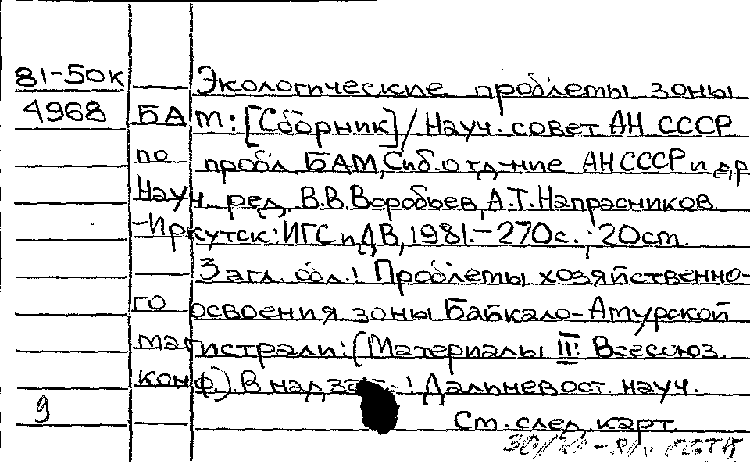 81-50к Экологические проблемы зоны
4968 БАМ: [Сборник] / Науч. совет АН СССР
по пробл. БАМ, Сиб. отд-ние АН СССР и др.
Науч. ред. В.В. Воробьев, А.Т. Напрасников
-Иркутск: ИГС и ДВ, 1981.-270с.; 20см.
Загл. обл.: Проблемы хозяйственно-
го освоения зоны Байкало-Амурской
магистрали: (Материалы III Всесоюз.
конф.) В надзаг.: Дальневост. науч.
9 См. след. карт.